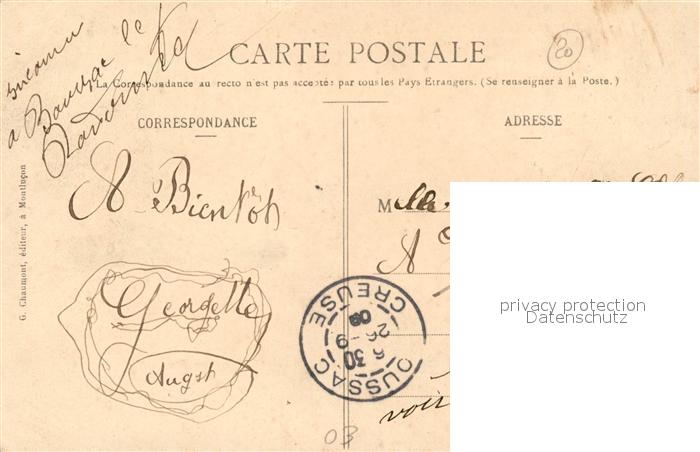 CARTE POSTALE
20
La Correspondance au recto n'est pas acceptée par tous les Pays Etrangers. (Se renseigner à la Poste.)
CORRESPONDANCE
ADRESSE
A Bientôt
Georgette
August
G. Chaumont, éditeur, à Montluçon
Melle
A
OUSSAC
CREUSE
6 30
26-9
09
voir
03
privacy protection
Datenschutz